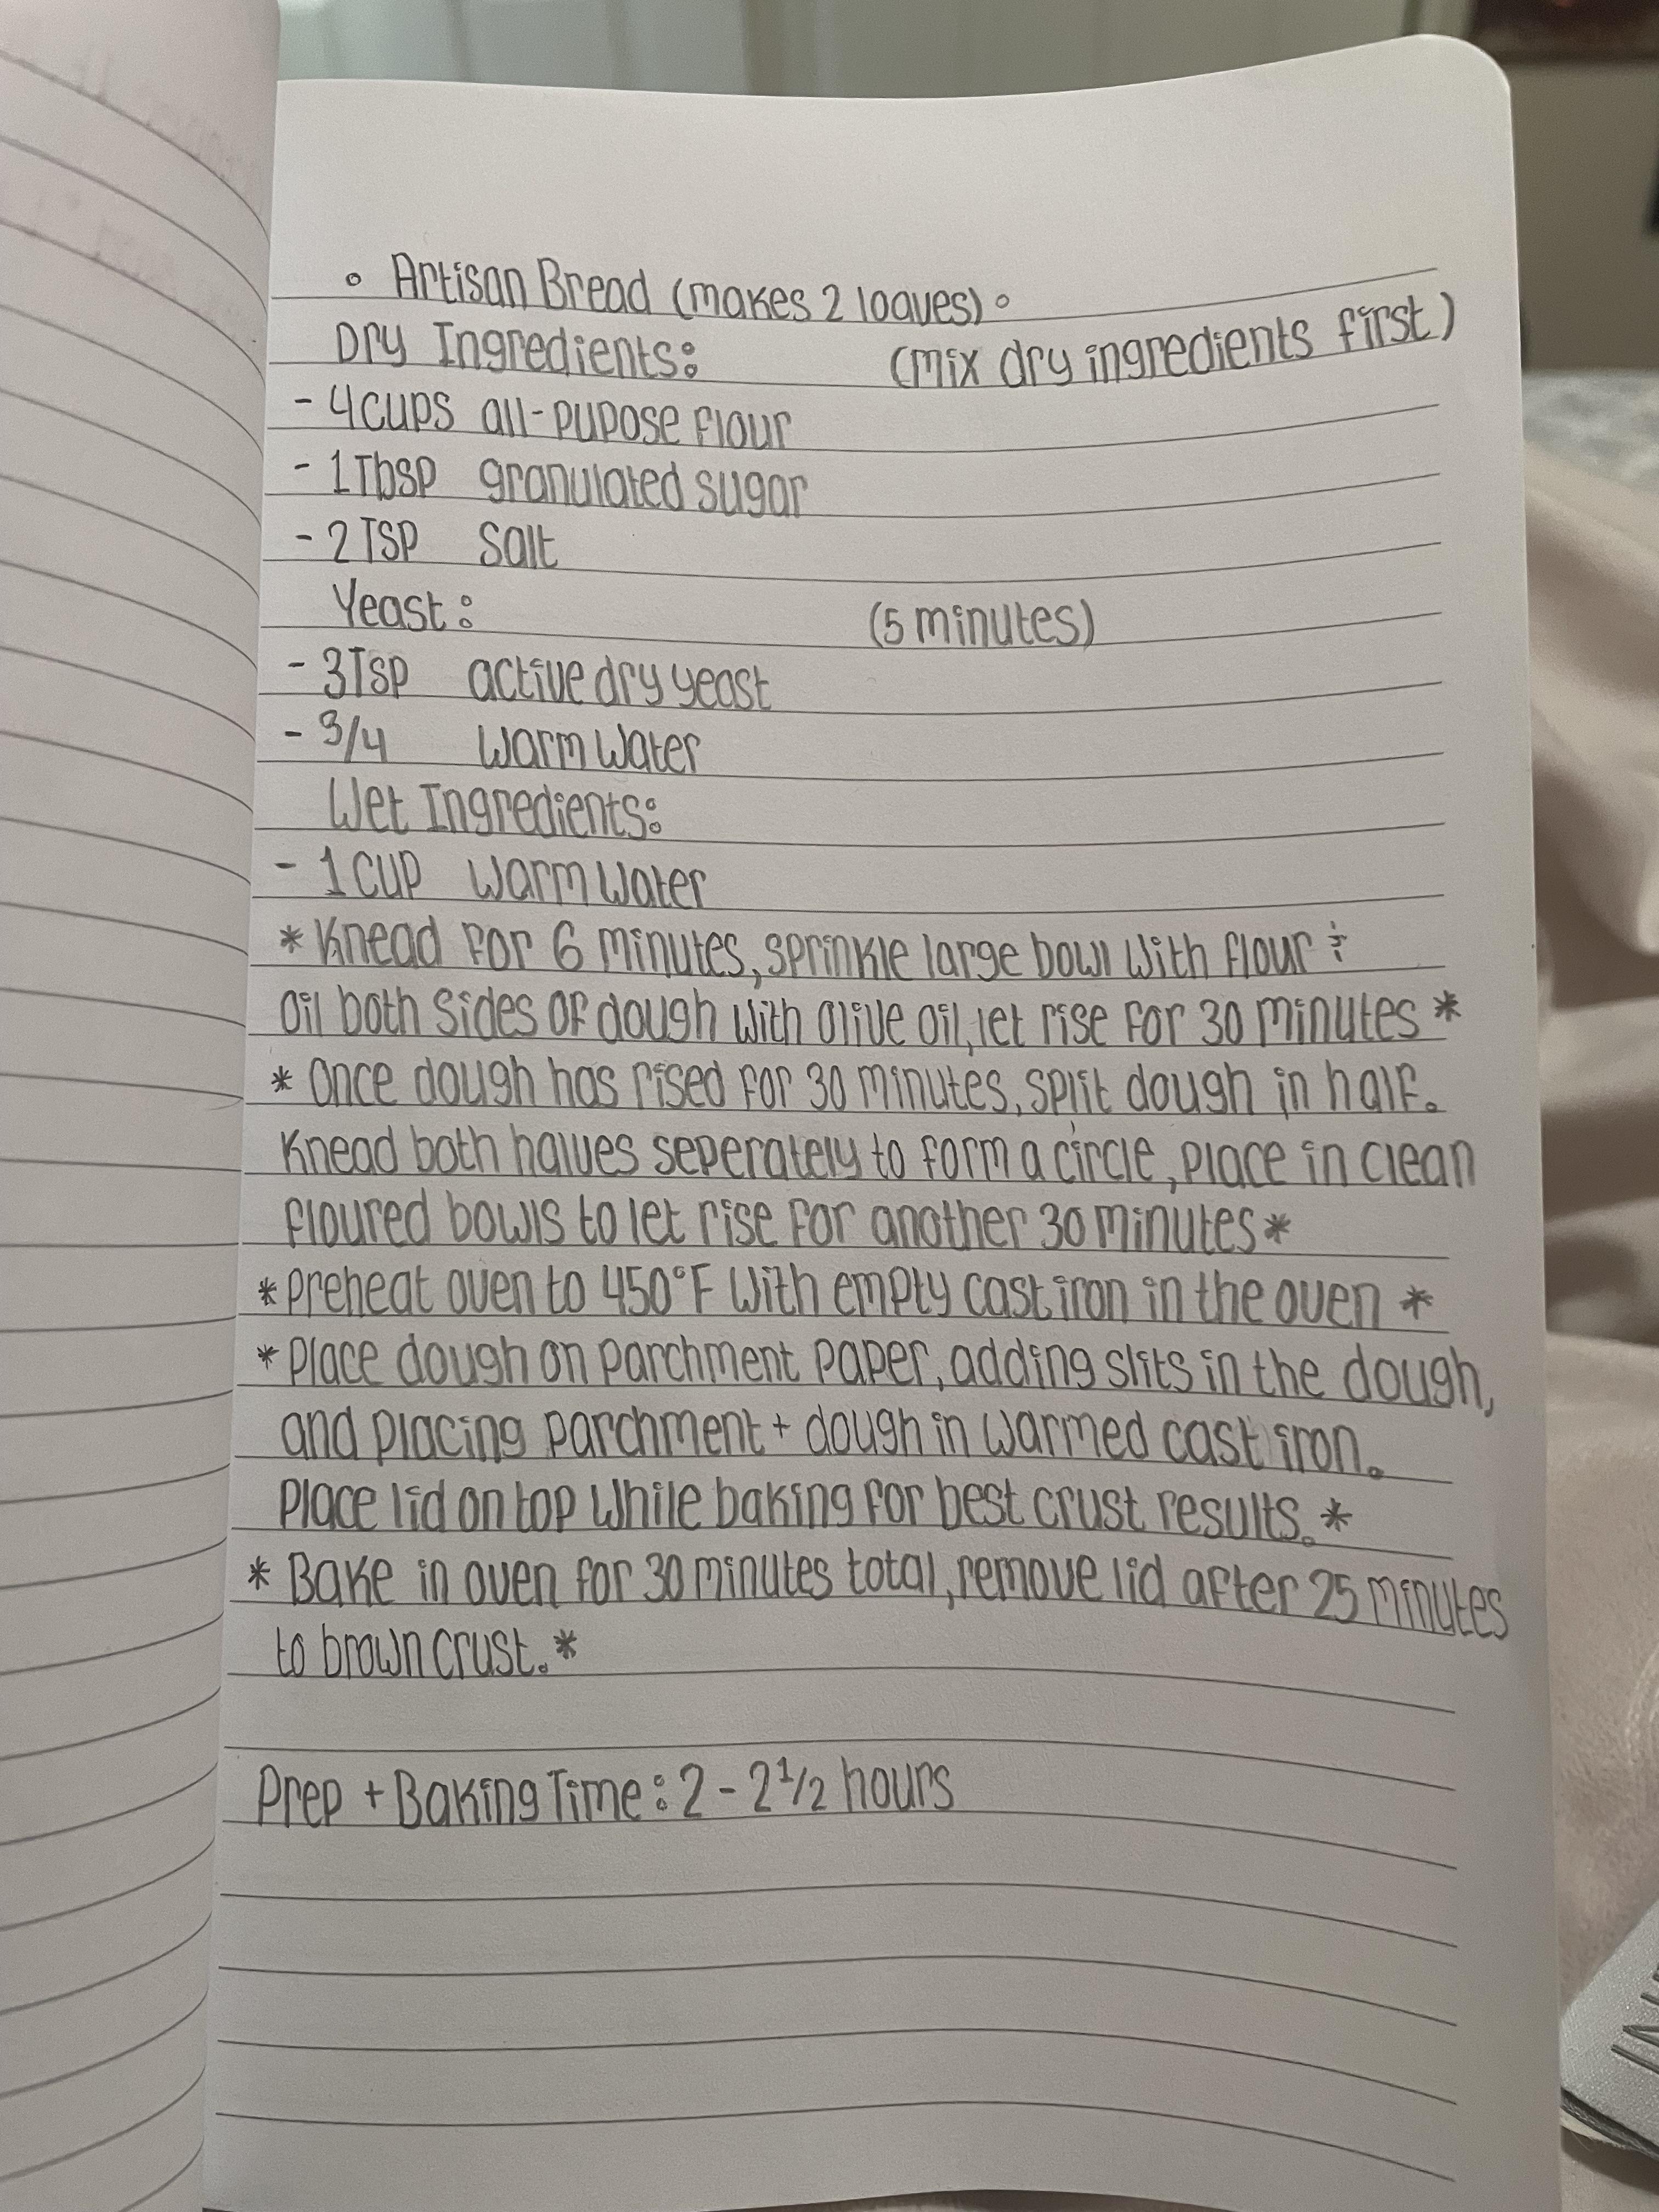 ° Artisan Bread (makes 2 loaves) °
Dry Ingredients: (mix dry ingredients first)
- 4 cups all-pupose flour
- 1 Tbsp granulated sugar
- 2 Tsp Salt
Yeast: (5 minutes)
- 3 Tsp active dry yeast
- 3/4 Warm Water
Wet Ingredients:
- 1 cup Warm Water
* Knead for 6 minutes, sprinkle large bowl with flour &
oil both sides of dough with olive oil, let rise for 30 minutes *
* Once dough has rised for 30 minutes, split dough in half.
Knead both halves seperately to form a circle, place in clean
floured bowls to let rise for another 30 minutes *
* Preheat oven to 450°F with empty cast iron in the oven *
* Place dough on parchment paper, adding slits in the dough,
and placing parchment + dough in warmed cast iron.
Place lid on top while baking for best crust results. *
* Bake in oven for 30 minutes total, remove lid after 25 minutes
to brown crust. *
Prep + Baking Time: 2 - 2 1/2 hours